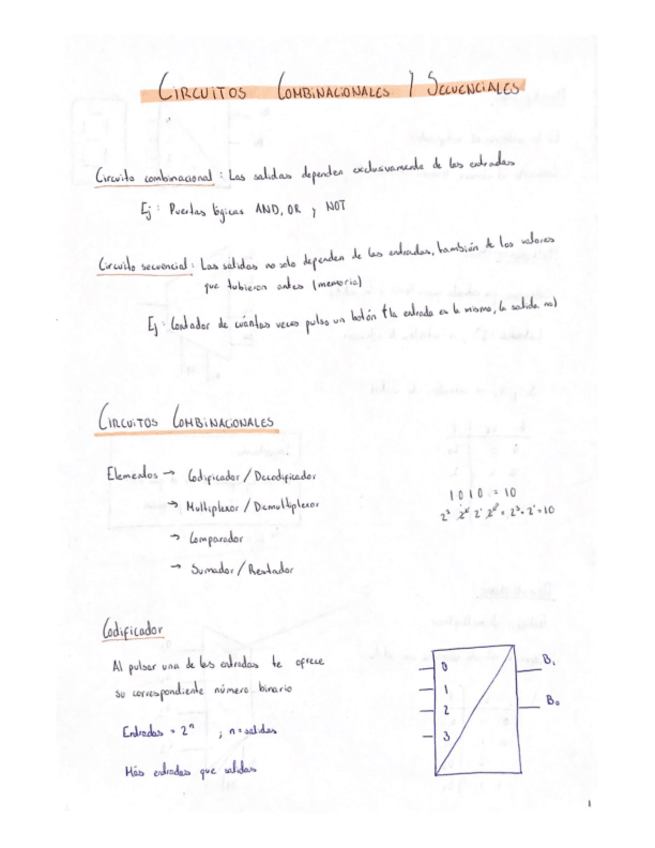 CIRCUITOS COMBINACIONALES Y SECUENCIALES
Circuito combinacional : Las salidas dependen exclusivamente de las entradas
Ej : Puertas lógicas AND, OR y NOT
Circuito secuencial : Las salidas no solo dependen de las entradas, también de los valores
que tubieron antes (memoria)
Ej : Contador de cuántas veces pulso un botón (la entrada es la misma, la salida no)
CIRCUITOS COMBINACIONALES
Elementos → Codificador / Decodificador
→ Multiplexor / Demultiplexor
→ Comparador
→ Sumador / Restador
1 0 1 0 = 10
2³ 2² 2¹ 2⁰ = 2³ + 2¹ = 10
Codificador
Al pulsar una de las entradas te ofrece
su correspondiente número binario
Entradas = 2ⁿ ; n = salidas
Más entradas que salidas
0
1
2
3
B₁
B₀
1